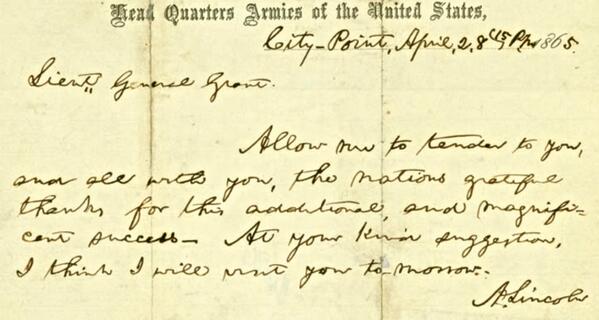 Head Quarters Armies of the United States,
City-Point, April, 2. 8 45 P.M. 1865.
Lieut. General Grant.
Allow me to tender to you,
and all with you, the nations grateful
thanks for this additional, and magnifi-
cent success- At your kind suggestion,
I think I will visit you to-morrow.-
A. Lincoln